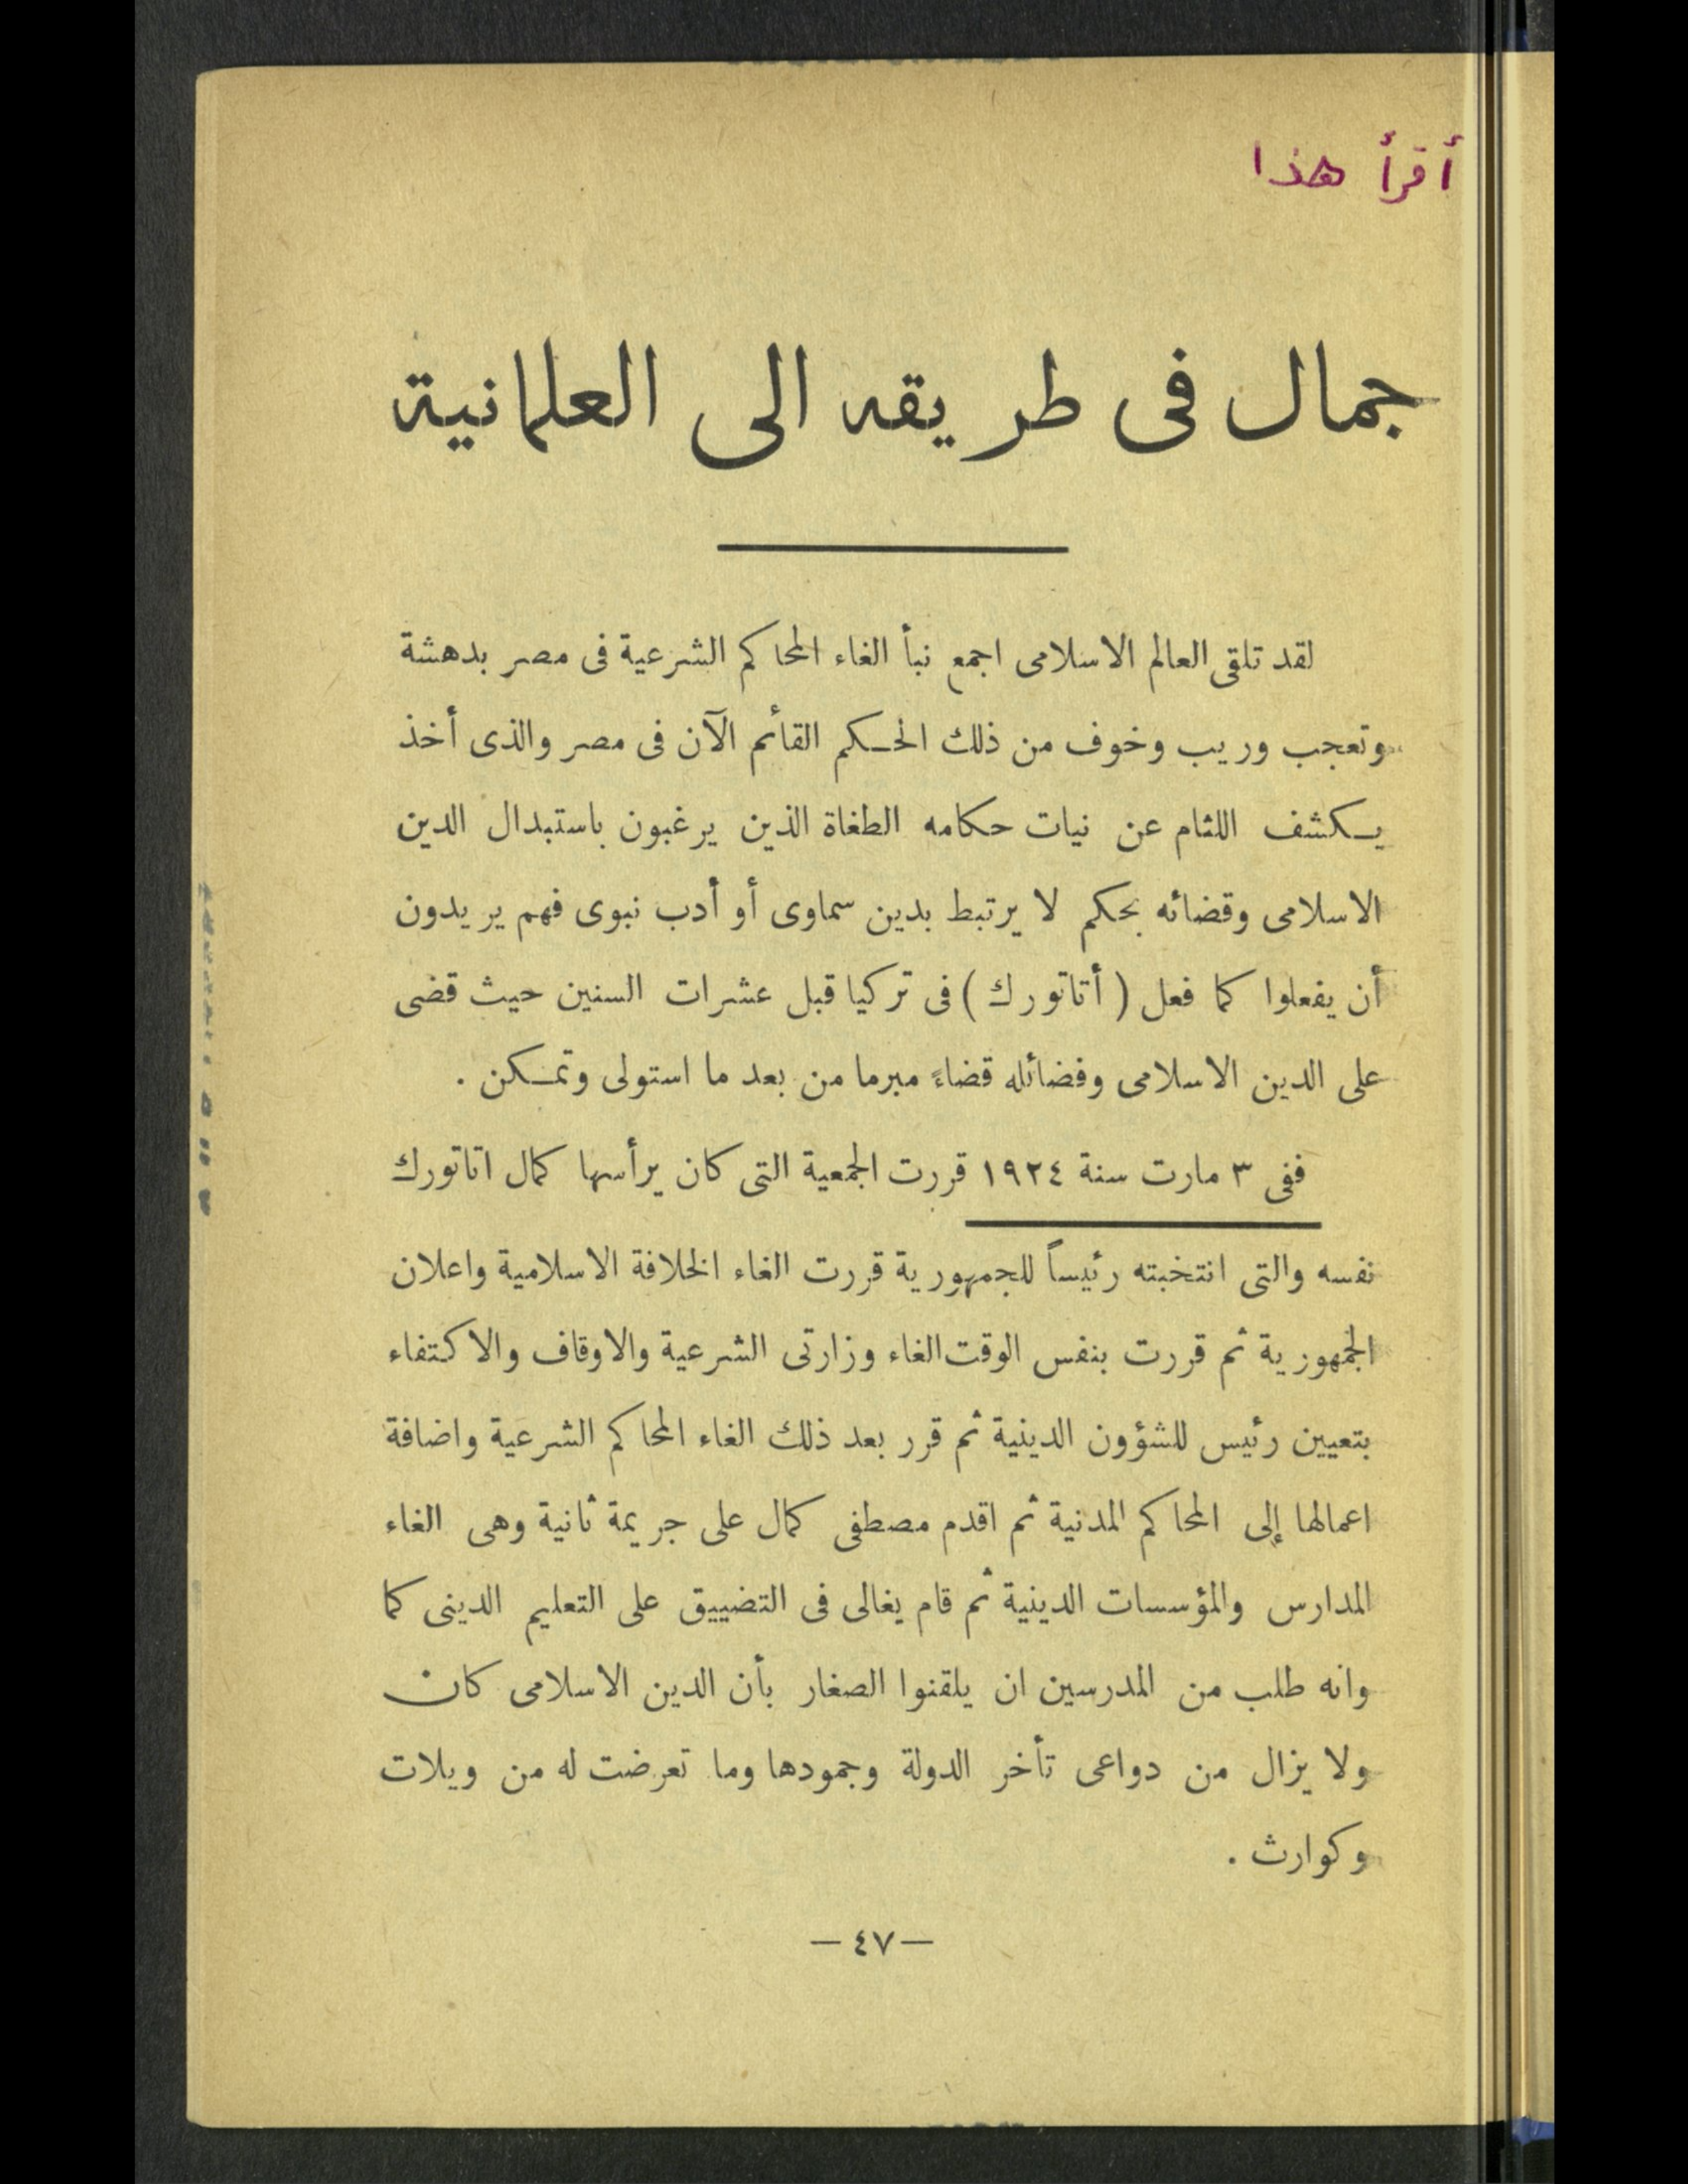 أقرأ هذا
جمال فى طريقه الى العلمانية
لقد تلقى العالم الاسلامى اجمع نبأ الغاء المحاكم الشرعية فى مصر بدهشة
وتعجب وريب وخوف من ذلك الحكم القائم الآن فى مصر والذى أخذ
يكشف اللثام عن نيات حكامه الطغاة الذين يرغبون باستبدال الدين
الاسلامى وقضائه بحكم لا يرتبط بدين سماوى أو أدب نبوى فهم يريدون
أن يفعلوا كما فعل ( أتاتورك ) فى تركيا قبل عشرات السنين حيث قضى
على الدين الاسلامى وفضائله قضاءً مبرما من بعد ما استولى وتمكن .
ففى ٣ مارت سنة ١٩٢٤ قررت الجمعية التى كان يرأسها كمال اتاتورك
نفسه والتى انتخبته رئيساً للجمهورية قررت الغاء الخلافة الاسلامية واعلان
الجمهورية ثم قررت بنفس الوقت الغاء وزارتى الشرعية والاوقاف والاكتفاء
بتعيين رئيس للشؤون الدينية ثم قرر بعد ذلك الغاء المحاكم الشرعية واضافة
اعمالها إلى المحاكم المدنية ثم اقدم مصطفى كمال على جريمة ثانية وهى الغاء
المدارس والمؤسسات الدينية ثم قام يغالى فى التضييق على التعليم الدينى كما
وانه طلب من المدرسين ان يلقنوا الصغار بأن الدين الاسلامى كان
ولا يزال من دواعى تأخر الدولة وجمودها وما تعرضت له من ويلات
وكوارث .
— ٤٧ —